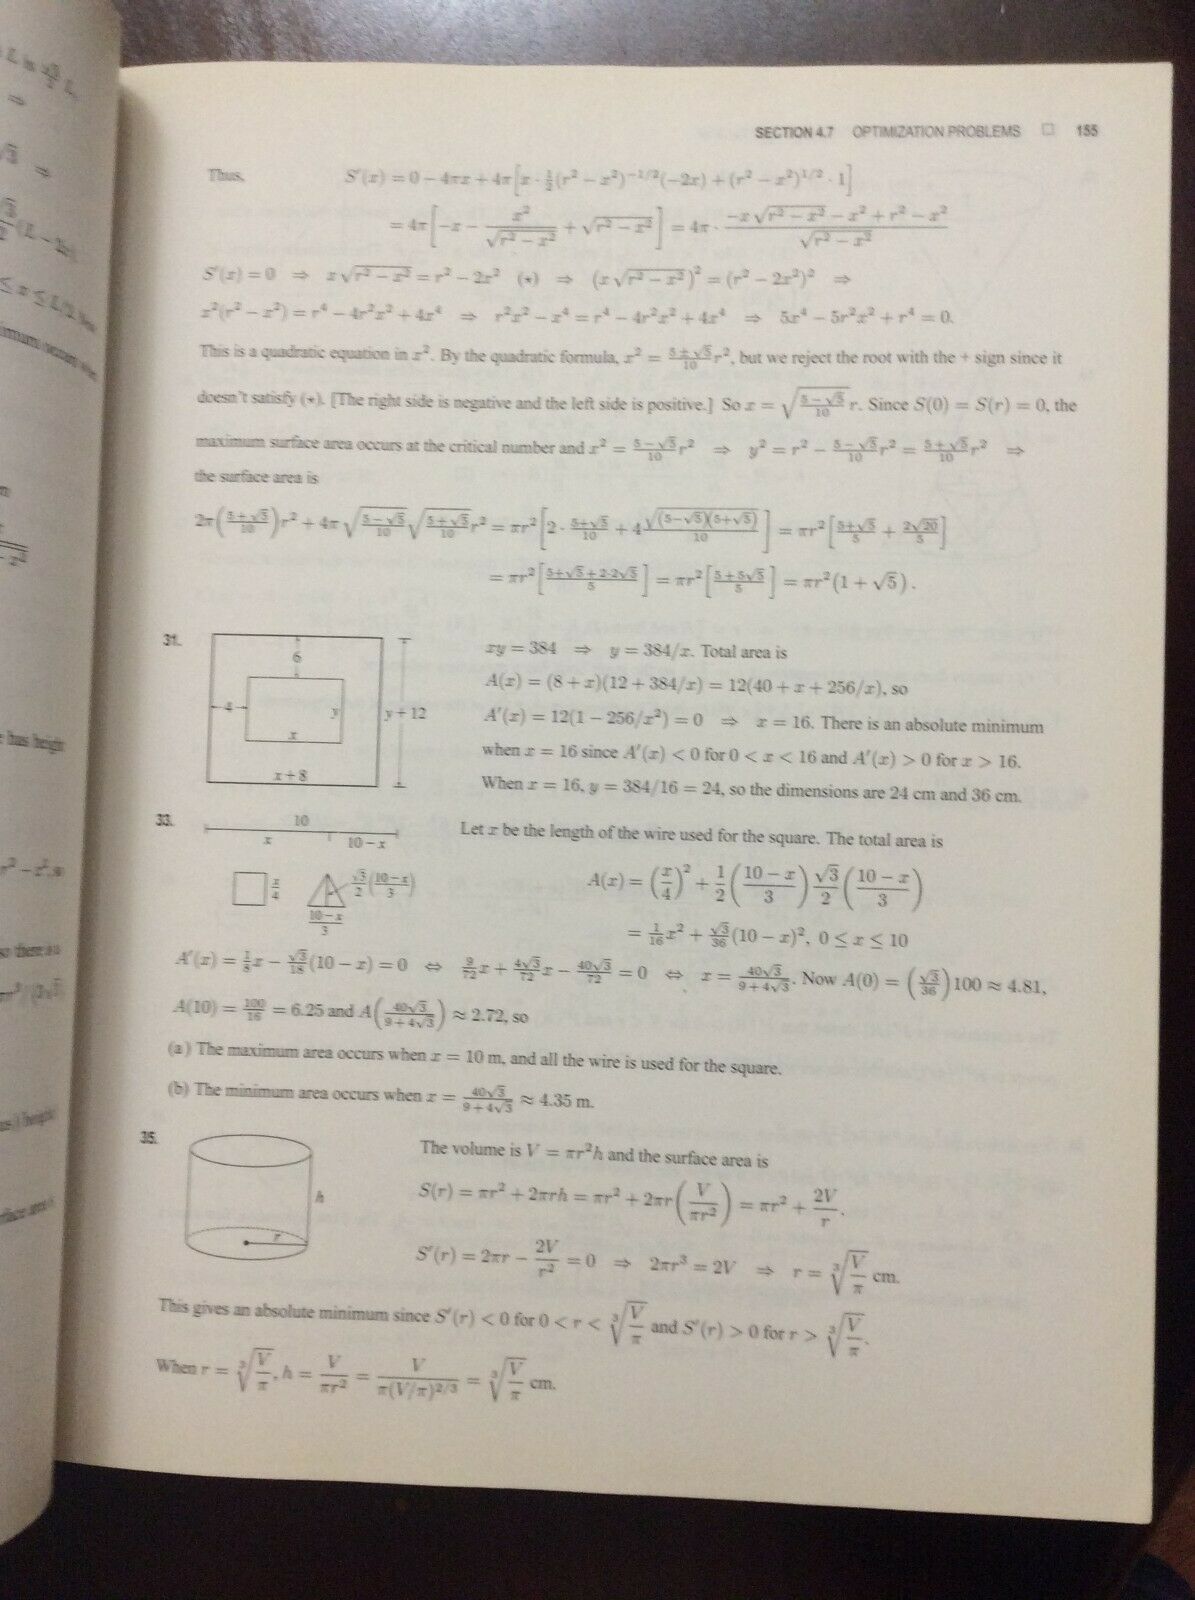 SECTION 4.7 OPTIMIZATION PROBLEMS □ 155
Thus, S′(x) = 0 − 4πx + 4π[x · ½(r² − x²)^−1/2(−2x) + (r² − x²)^1/2 · 1]
= 4π[−x − x²/√(r² − x²) + √(r² − x²)] = 4π · (−x√(r² − x²) − x² + r² − x²)/√(r² − x²)
S′(x) = 0 ⇒ x√(r² − x²) = r² − 2x² (⋆) ⇒ (x√(r² − x²))² = (r² − 2x²)² ⇒
x²(r² − x²) = r⁴ − 4r²x² + 4x⁴ ⇒ r²x² − x⁴ = r⁴ − 4r²x² + 4x⁴ ⇒ 5x⁴ − 5r²x² + r⁴ = 0.
This is a quadratic equation in x². By the quadratic formula, x² = (5 ± √5)/10 r², but we reject the root with the + sign since it
doesn't satisfy (⋆). [The right side is negative and the left side is positive.] So x = √((5 − √5)/10) r. Since S(0) = S(r) = 0, the
maximum surface area occurs at the critical number and x² = (5 − √5)/10 r² ⇒ y² = r² − (5 − √5)/10 r² = (5 + √5)/10 r² ⇒
the surface area is
2π((5 + √5)/10)r² + 4π√((5 − √5)/10)√((5 + √5)/10)r² = πr²[2 · (5+√5)/10 + 4 √((5−√5)(5+√5))/10] = πr²[(5+√5)/5 + 2√20/5]
= πr²[(5+√5+2·2√5)/5] = πr²[(5+5√5)/5] = πr²(1 + √5).
31.
6
4
y
x
y + 12
x + 8
xy = 384 ⇒ y = 384/x. Total area is
A(x) = (8 + x)(12 + 384/x) = 12(40 + x + 256/x), so
A′(x) = 12(1 − 256/x²) = 0 ⇒ x = 16. There is an absolute minimum
when x = 16 since A′(x) < 0 for 0 < x < 16 and A′(x) > 0 for x > 16.
When x = 16, y = 384/16 = 24, so the dimensions are 24 cm and 36 cm.
33.
10
x 10 − x
x/4
√3/2 ((10−x)/3)
(10−x)/3
Let x be the length of the wire used for the square. The total area is
A(x) = (x/4)² + 1/2((10 − x)/3) √3/2 ((10 − x)/3)
= 1/16 x² + √3/36 (10 − x)², 0 ≤ x ≤ 10
A′(x) = 1/8 x − √3/18 (10 − x) = 0 ⇔ 9/72 x + 4√3/72 x − 40√3/72 = 0 ⇔ x = 40√3/(9+4√3). Now A(0) = (√3/36)100 ≈ 4.81,
A(10) = 100/16 = 6.25 and A(40√3/(9+4√3)) ≈ 2.72, so
(a) The maximum area occurs when x = 10 m, and all the wire is used for the square.
(b) The minimum area occurs when x = 40√3/(9+4√3) ≈ 4.35 m.
35.
h
r
The volume is V = πr²h and the surface area is
S(r) = πr² + 2πrh = πr² + 2πr(V/πr²) = πr² + 2V/r.
S′(r) = 2πr − 2V/r² = 0 ⇒ 2πr³ = 2V ⇒ r = ∛(V/π) cm.
This gives an absolute minimum since S′(r) < 0 for 0 < r < ∛(V/π) and S′(r) > 0 for r > ∛(V/π).
When r = ∛(V/π), h = V/πr² = V/π(V/π)^2/3 = ∛(V/π) cm.